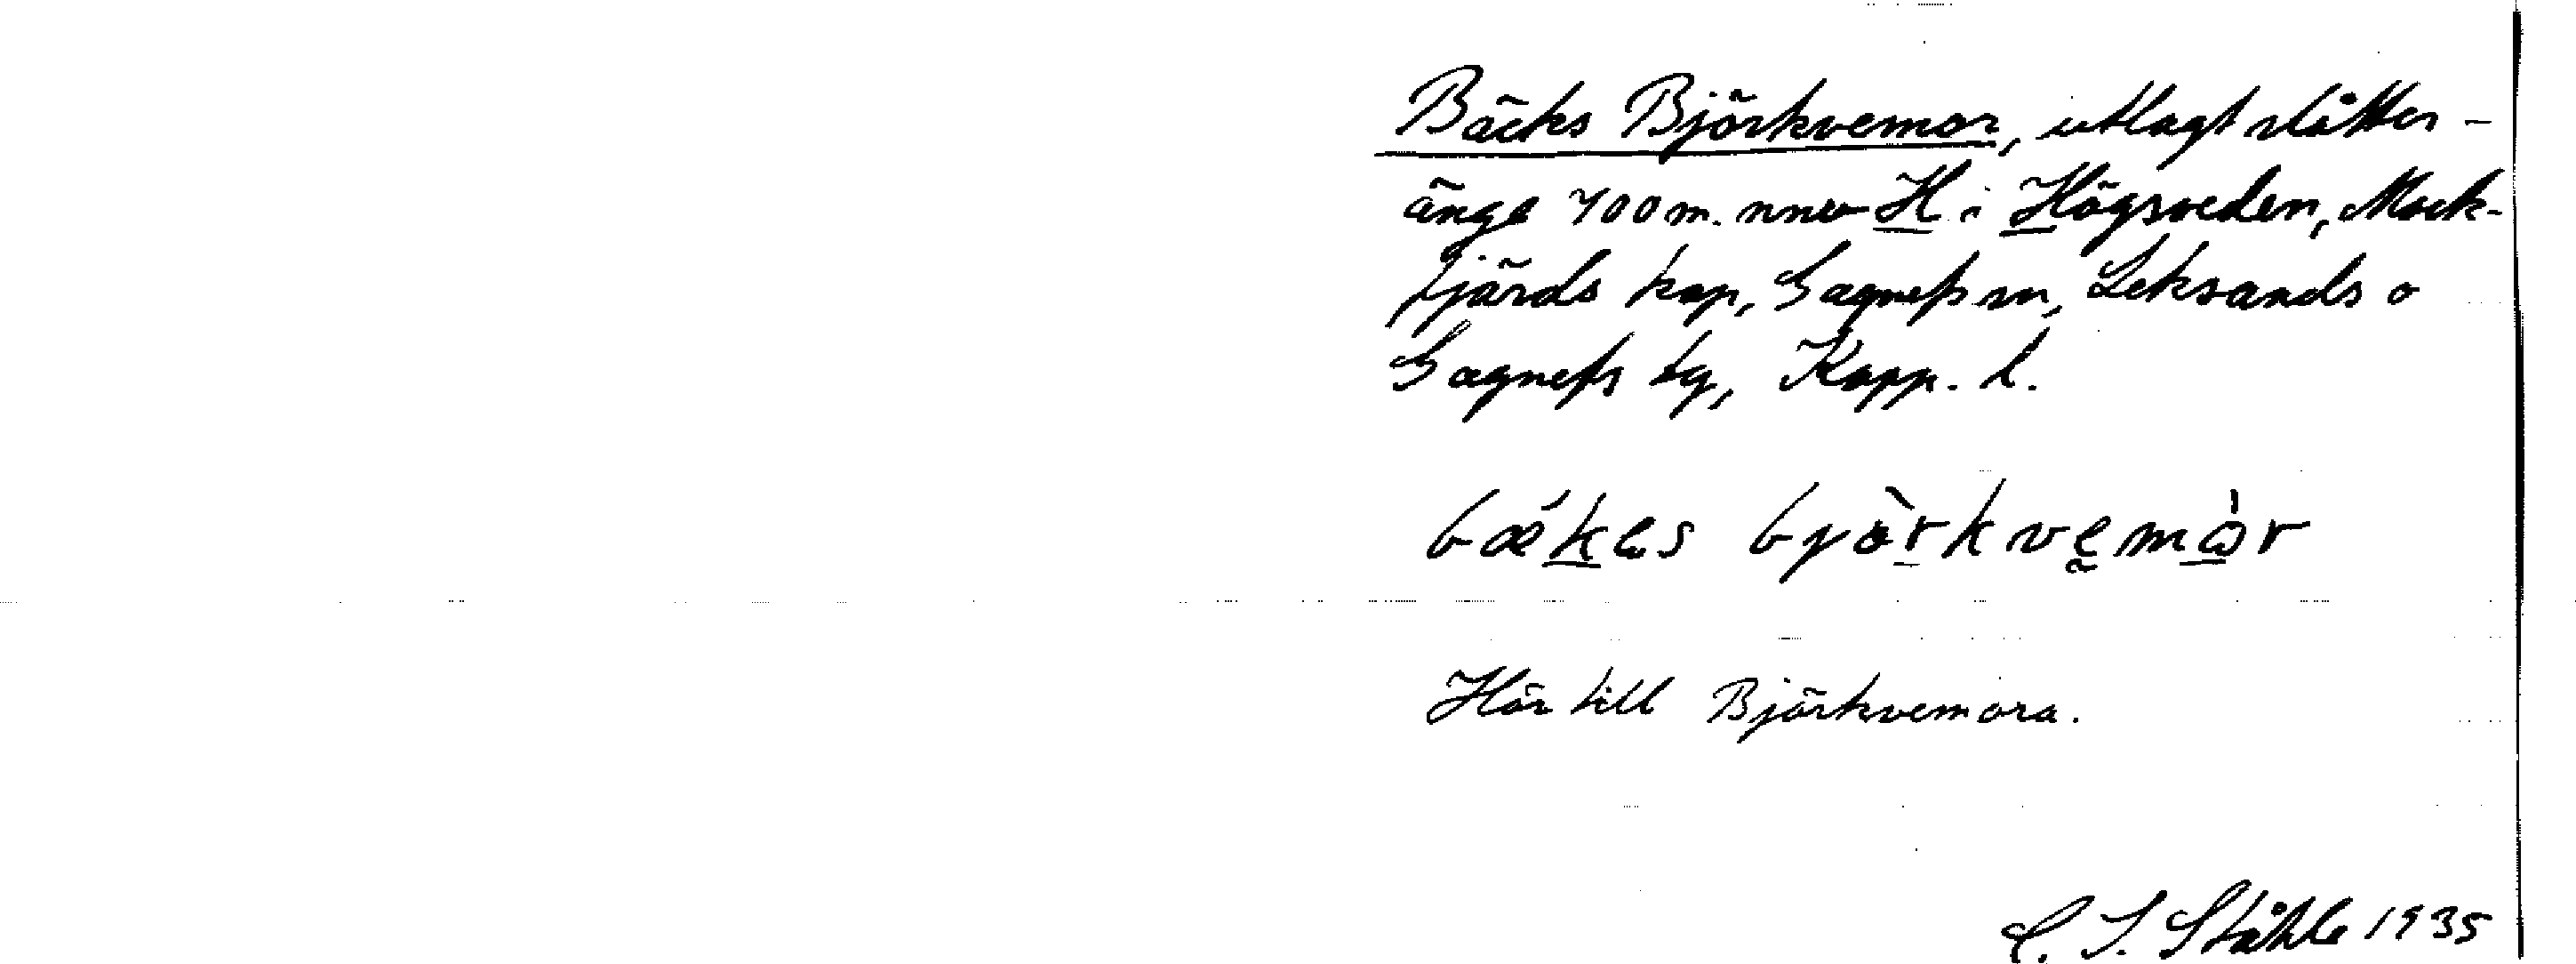 Bäcks Björkvemor, utlagt slåtter-
änge 700 m. nnv H i Högsveden, Mock-
fjärds kap, Gagnefs sn, Leksands o
Gagnefs tg, Kopp. l.
Hör till Björkvemora.
C. I. Ståhle 1935